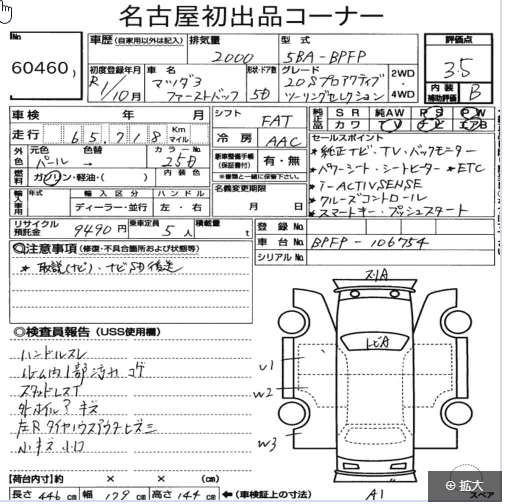 名古屋初出品コーナー
No.
60460
車歴 (自家用以外は記入)
排気量
2000
型式
5BA-BPFP
評価点
3.5
初度登録年月
R 1/10月
車名
マツダ3
ファーストバック
形状・ドア数
5D
グレード
20Sプロアクティブ
ツーリングセレクション
2WD
4WD
内装
補助評価
B
車検 年 月
シフト
FAT
純正品
SR 純AW PS PW
カワ ナビ エアB
走行
65718 Km マイル
冷房
AAC
セールスポイント
*純正ナビ・TV・バックモニター
*パワーシート・シートヒーター *ETC
*i-ACTIVSENSE
*クルーズコントロール
*スマートキー・プッシュスタート
外色
元色
パール
色替
→
カラーNo.
25D
新車整備手帳
(保証書付)
有・無
※書類と一緒に保管下さい。
燃料
ガソリン・軽油・( )
内装色
名義変更期限
月 日
輸入車用
年式
輸入区分
ディーラー・並行
ハンドル
左・右
リサイクル
預託金
9490円
乗車定員
5人
積載量
t
登録No.
車台No.
BPFP-106754
シリアルNo.
◎注意事項 (修復・不具合箇所および状態等)
*取説(ナビ)・ナビSD後送
◎検査員報告 (USS使用欄)
ハンドルスレ
スタッドレスT
外ホイル? キズ
左Rタイヤハウスアウタヒズミ
小キズ
U1
W2
W3
A1
【荷台内寸】約 × × (cm)
長さ 446 cm 幅 179 cm 高さ 144 cm
←(車検証上の寸法)
スペア
拡大